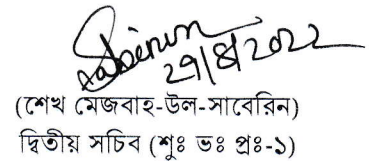 Saberin
29/8/2022
(শেখ মেজবাহ-উল-সাবেরিন)
দ্বিতীয় সচিব (শুঃ ভঃ প্রঃ-১)